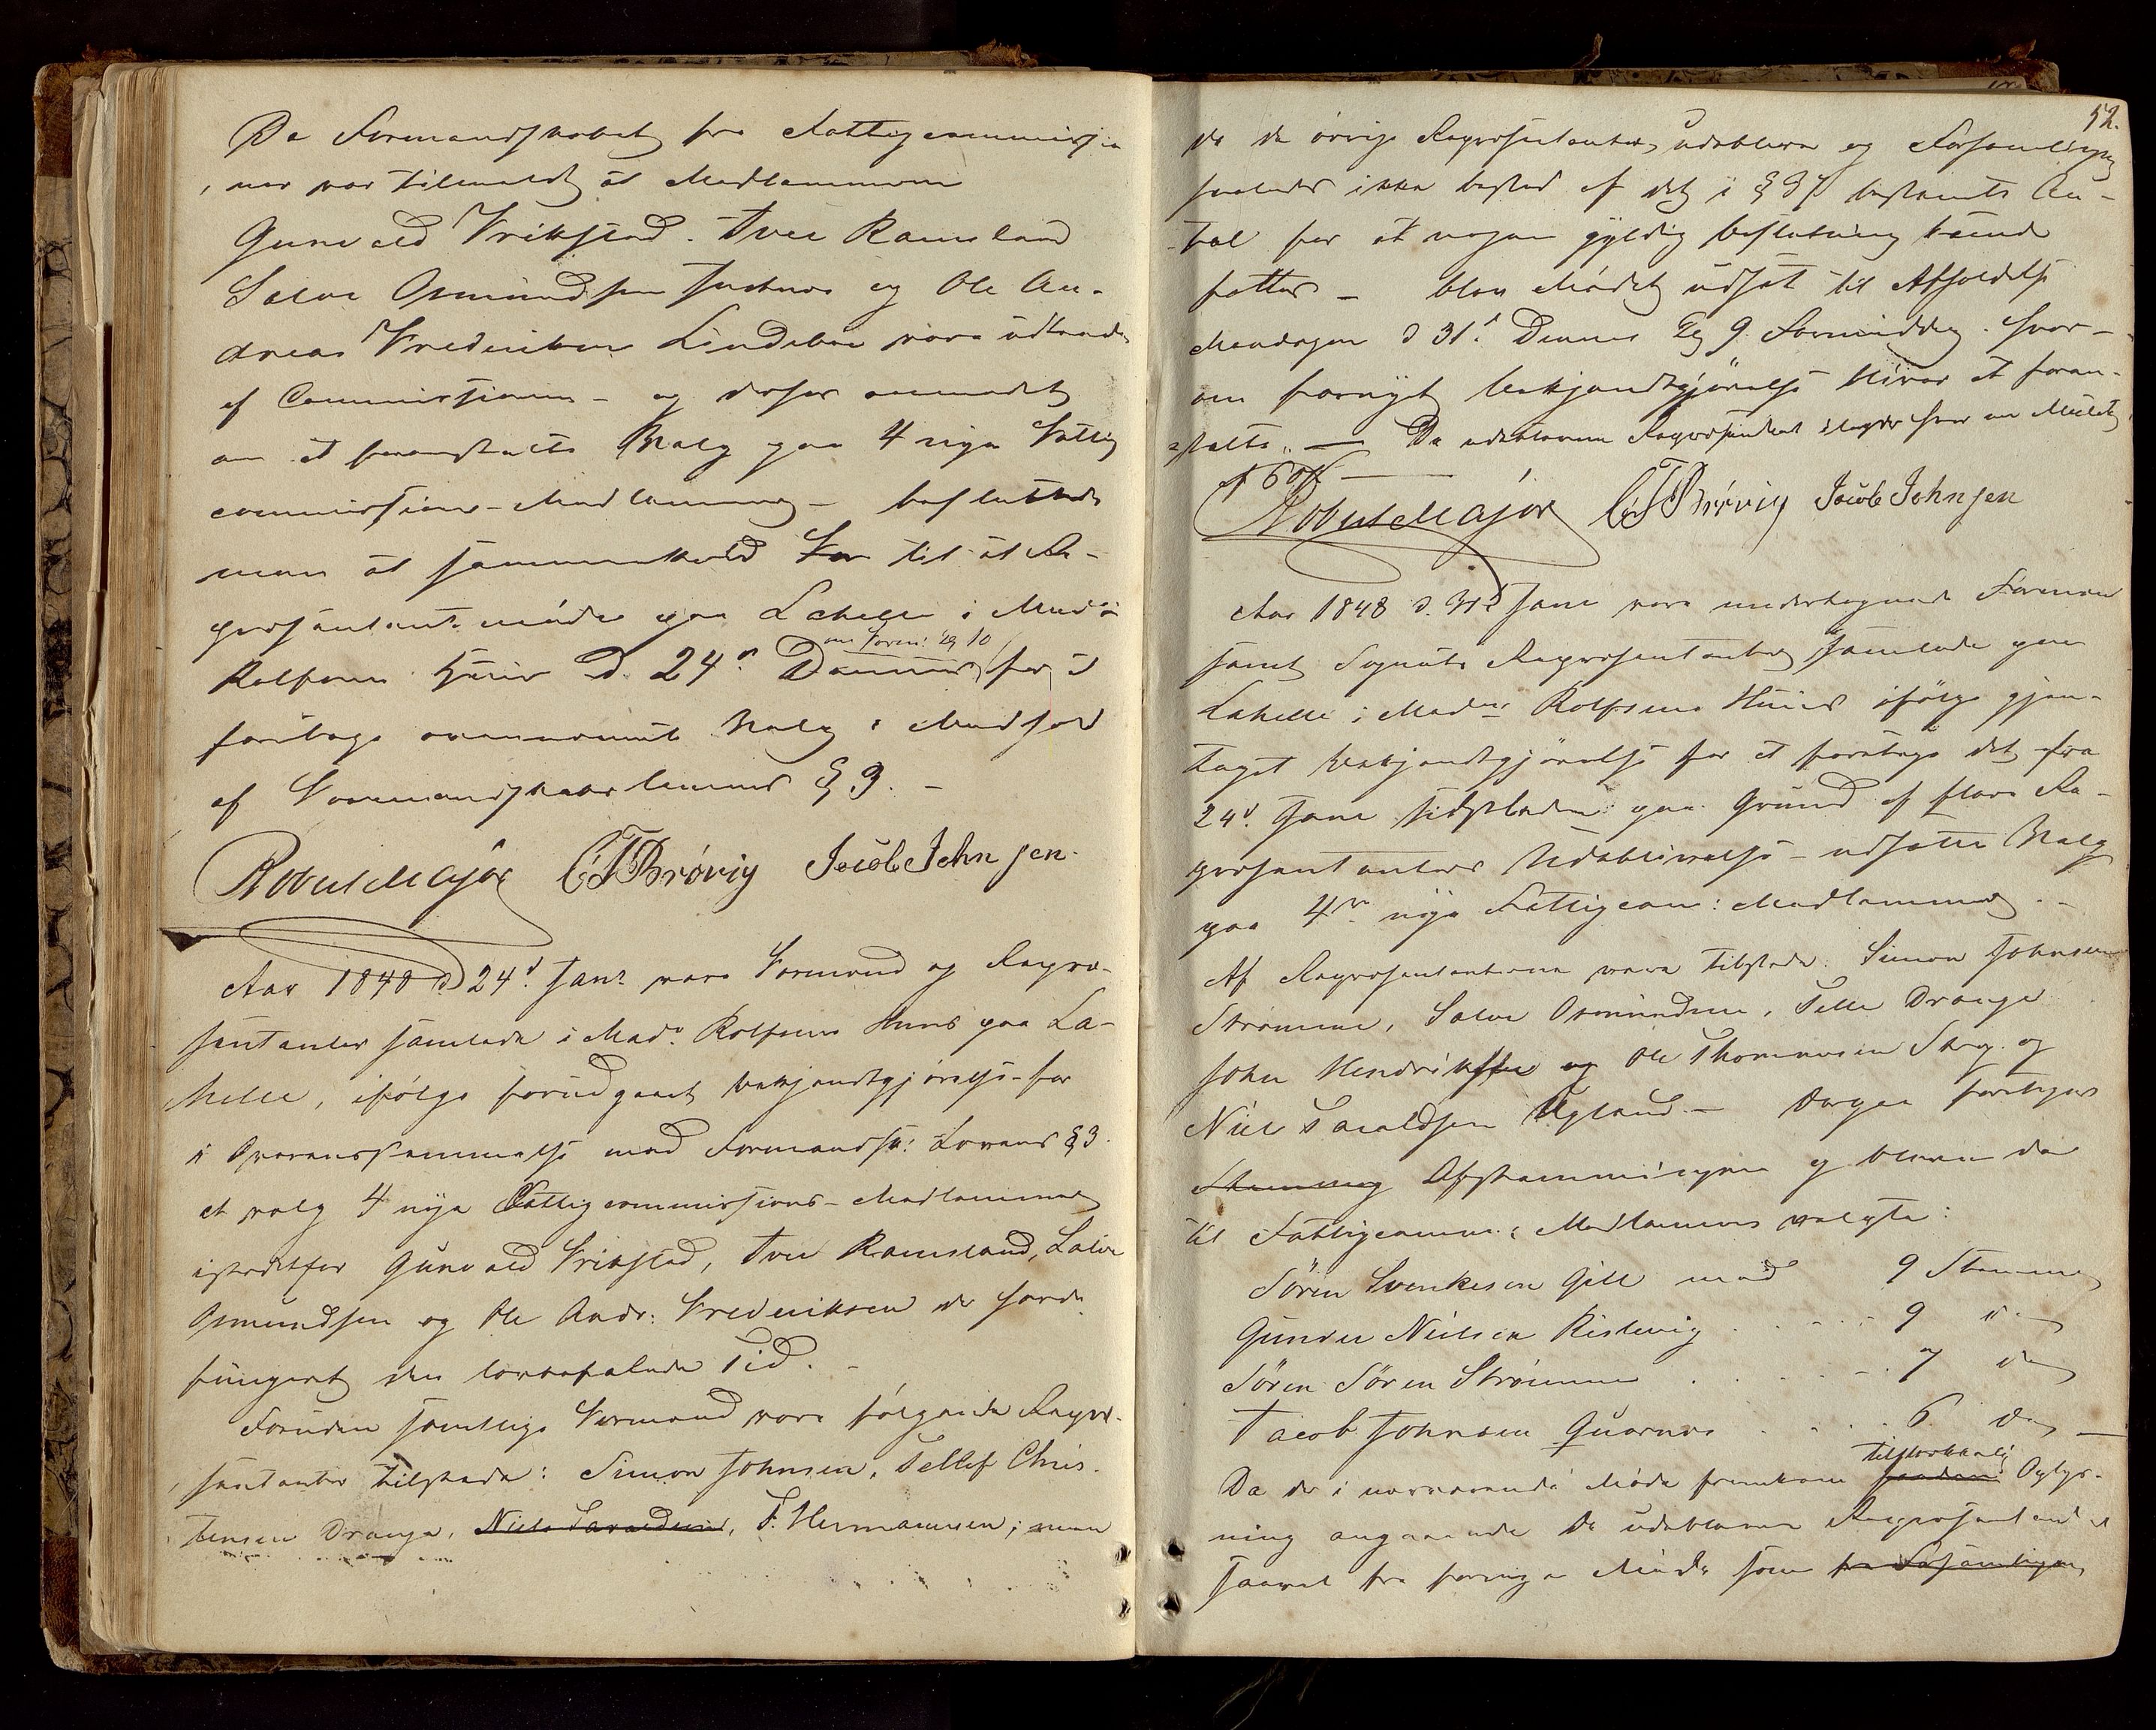 Da Formandskabet fra Fattigcommissio
nen var tilmeldt at Medlemmerne
Gunvald Vrikstad. Tver Ramsland
Salve Osmundsen Justnes og Ole An-
dreas Vrederiksen Lindebøe vare udtraadt
af Commissionen – og derfor anmodet
om at foranstalte Valg paa 4 nye Fattig
commissions-Medlemmer – besluttede
man at sammenkalde til et Re-
præsentant møde paa Lahelle i Madme
Rolfsens Huus d. 24de Dennes for at
om Form: Kl 10
foretage ovennævnte Valg i Medhold
af Formandskabslovens § 3. –
Robert Major CTBrøvig Jacob Johnsen
Aar 1848 d 24d Janr vare Formænd og Repræ-
sentanter samlede i Mad. Rolfsens Huus paa La-
helle, ifølge forudgaaet bekjendtgjørelse – for
i Overensstemmelse med Formandsk: Lovens § 3.
at valg 4 nye Fattigcommissions-Medlemmer
istedetfor Gunvald Vrikstad, Tver Ramsland, Salve
Osmundsen og Ole Andr: Vrederiksen der havde
fungeret den lovbefalede Tid. –
Foruden samtlige Formænd vare følgende Repræ-
sentanter tilstede: Simon Johnsen, Tellef Chris-
tensen Drange, Niels Taraldsen, F. Hermannsen; men
52.
da de øvrige Repræsentanter udebleve og Forsamlingen
saaledes ikke bestod af det i § 37 bestemte An-
tal for at nogen gyldig beslutning kunde
fattes – blev Mødet udsat til Afholdelse
Mandagen d 31d Dennes Kl 9 Formiddag. hvor-
om fornyet bekjendtgjørelse bliver at foran-
stalte. – De udeblevne Repræsentanter ilægges hver en Mulct
af 60
Robert Major CTBrøvig Jacob Johnsen
Aar 1848 d. 31d Janr vare undertegnede Formænd
samt Sognets Repræsentanter samlede paa
Lahelle i Madms Rolfsens Huus ifølge gjen-
taget bekjendtgjørelse for at foretage det fra
24d Janr sidstleden paa Grund af flere Re-
præsentanters Udeblivelse – udsatte Valg
paa 4re nye Fattigcom: Medlemmer. –
Af Repræsentanterne vare tilstede: Simon Johnsen
Strømme, Salve Osmundsen, Telle Drange
John Hendriksen og Ole Thommesen Skog. og
Niel Taraldsen Ugland. – Derpaa foretoges
Stemning Afstemningen og bleve da
til Fattigcomm: Medlemmer valgte:
Søren Svenkesen Gill med 9 Stemmer
Gunder Nielsen Kislevig 9 "
Søren Sören Strømme 7 do
Jacob Johnsen Quarnes 6 do
Da der i nærværende Møde fremkom tilstrækkelig Oplys-
ning angaaende de udeblevne Repræsentanter
saavel fra forrige Møde som fra Forsamlingen